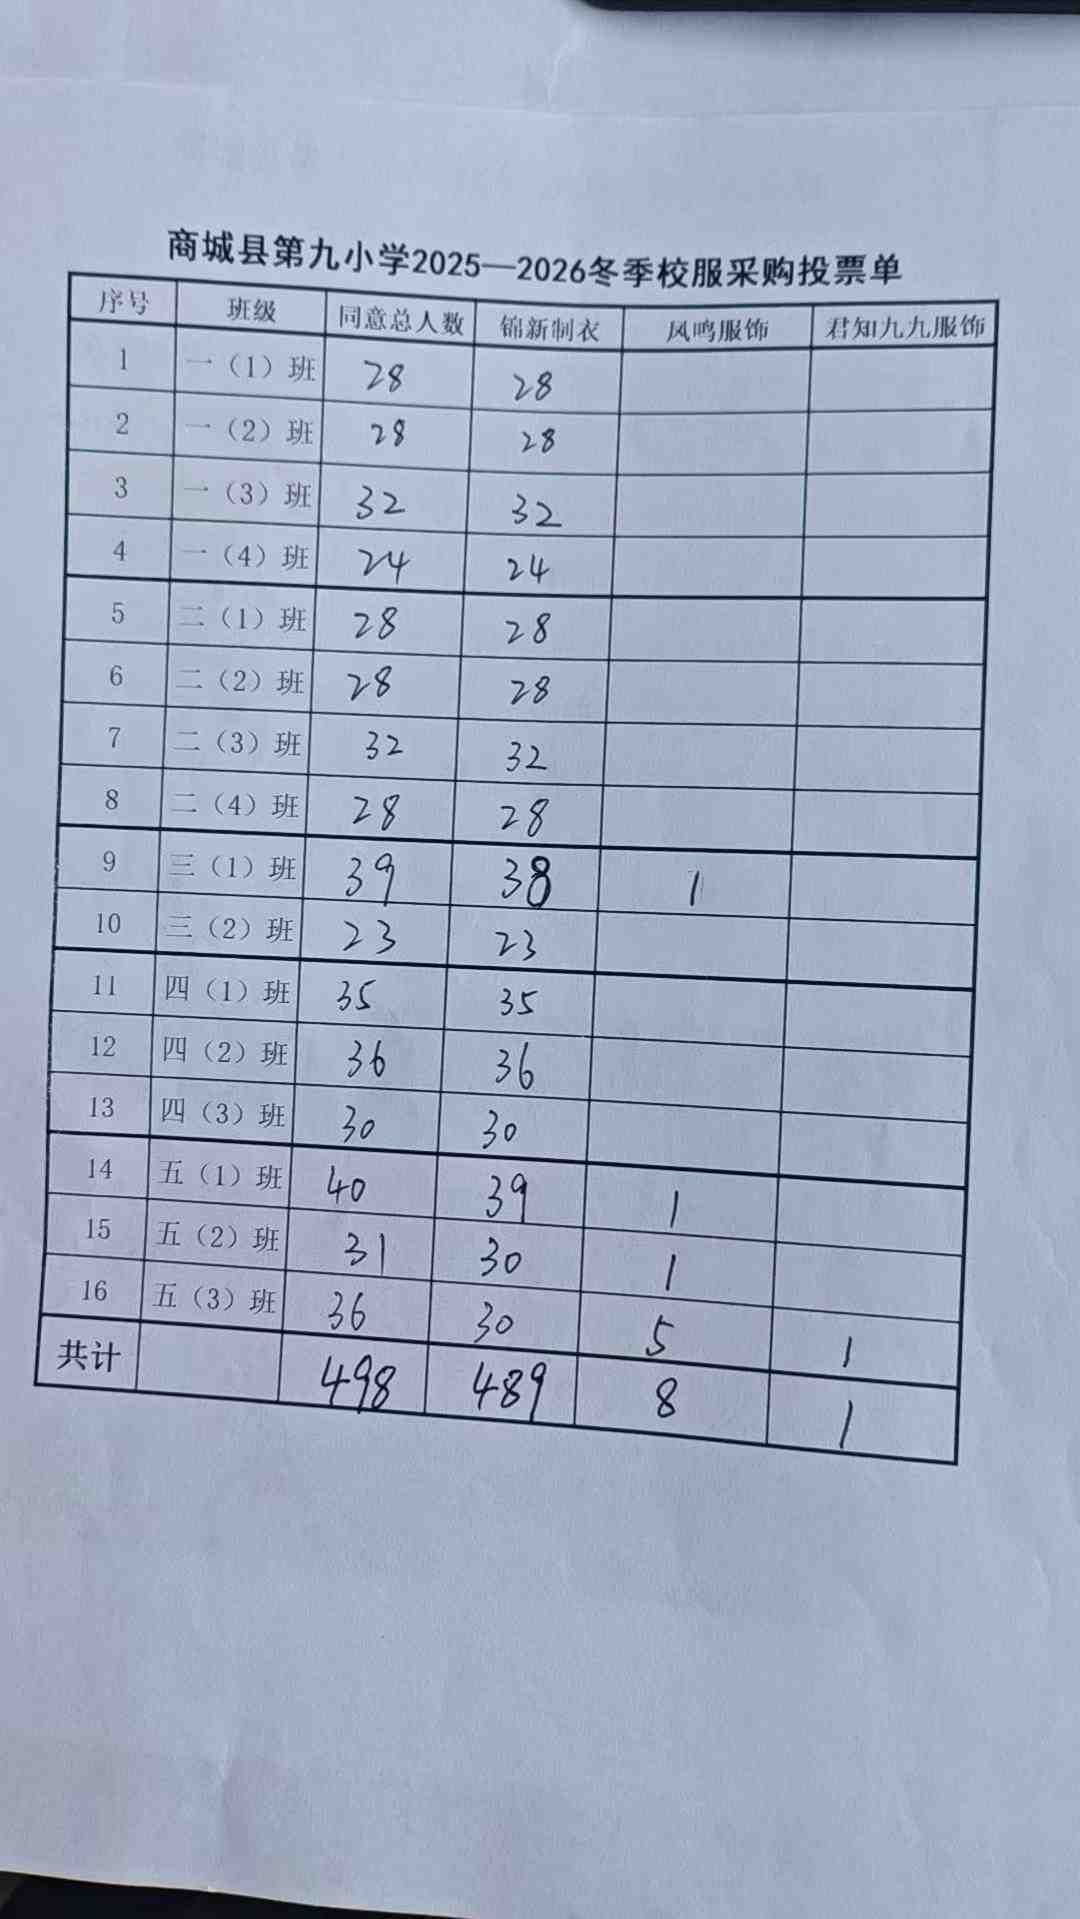 商城县第九小学2025—2026冬季校服采购投票单
序号 班级 同意总人数 锦新制衣 凤鸣服饰 君知九九服饰
1 一（1）班 28 28
2 一（2）班 28 28
3 一（3）班 32 32
4 一（4）班 24 24
5 二（1）班 28 28
6 二（2）班 28 28
7 二（3）班 32 32
8 二（4）班 28 28
9 三（1）班 39 38 1
10 三（2）班 23 23
11 四（1）班 35 35
12 四（2）班 36 36
13 四（3）班 30 30
14 五（1）班 40 39 1
15 五（2）班 31 30 1
16 五（3）班 36 30 5 1
共计 498 489 8 1